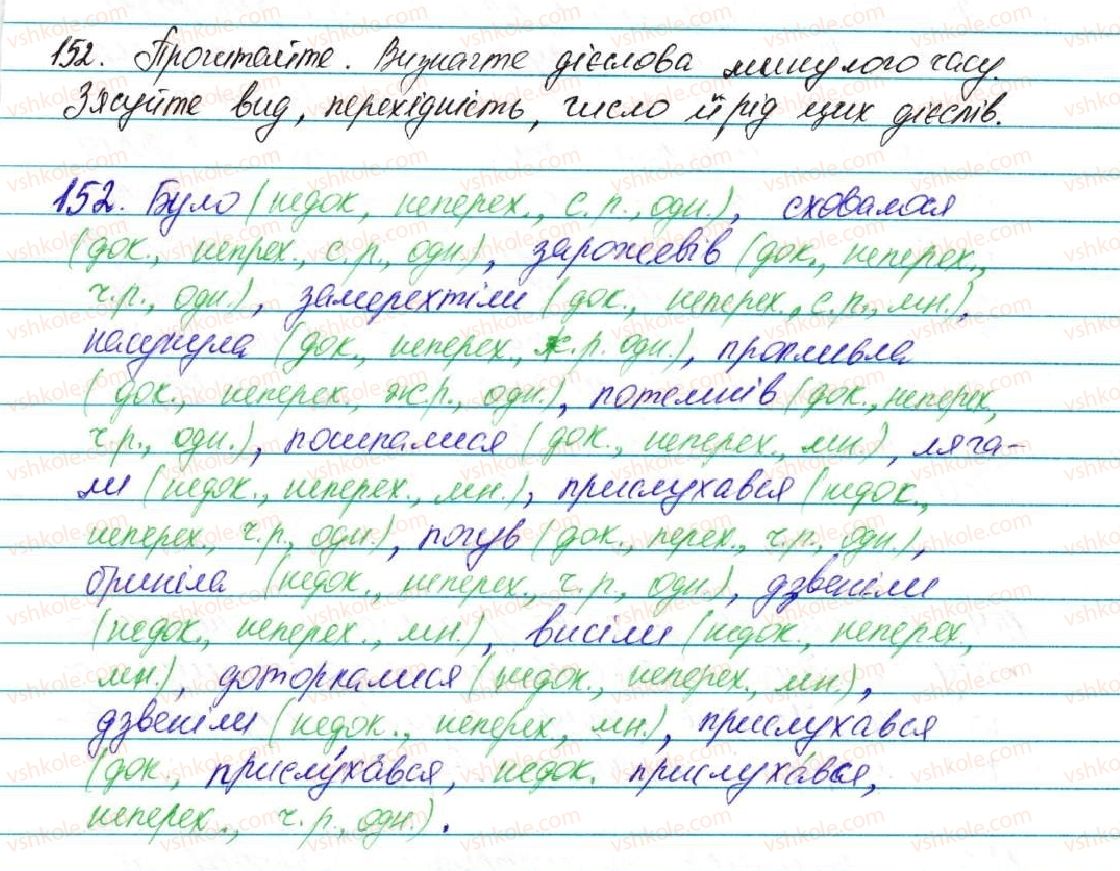 152. Прочитайте. Визначте дієслова минулого часу.
Зясуйте вид, перехідність, число й рід цих дієслів.
152. Було (недок, неперех., с.р., одн.), сховалося
(док., непрех., с.р., одн.), зарожевів (док., неперех.,
ч.р., одн.), замерехтіли (док., неперех., с.р., мн.),
насунула (док., неперех., ж.р. одн.), пропливла
(док., неперех., ж.р., одн.), потемнів (док., неперех,
ч.р., одн.), посипалися (док., неперех., мн.), ляга-
ли (недок., неперех., мн.), прислухався (недок.,
неперех., ч.р., одн.), почув (док., перех., ч.р., одн.),
бриніла (недок., неперех., ч.р., одн.), дзвеніли
(недок., неперех., мн.), висіли (недок., неперех.,
мн.), доторкалися (недок., неперех., мн.),
дзвеніли (недок., неперех, мн.), прислухався
(док., прислу́хався, недок. прислуха́вся,
неперех., ч.р., одн.).